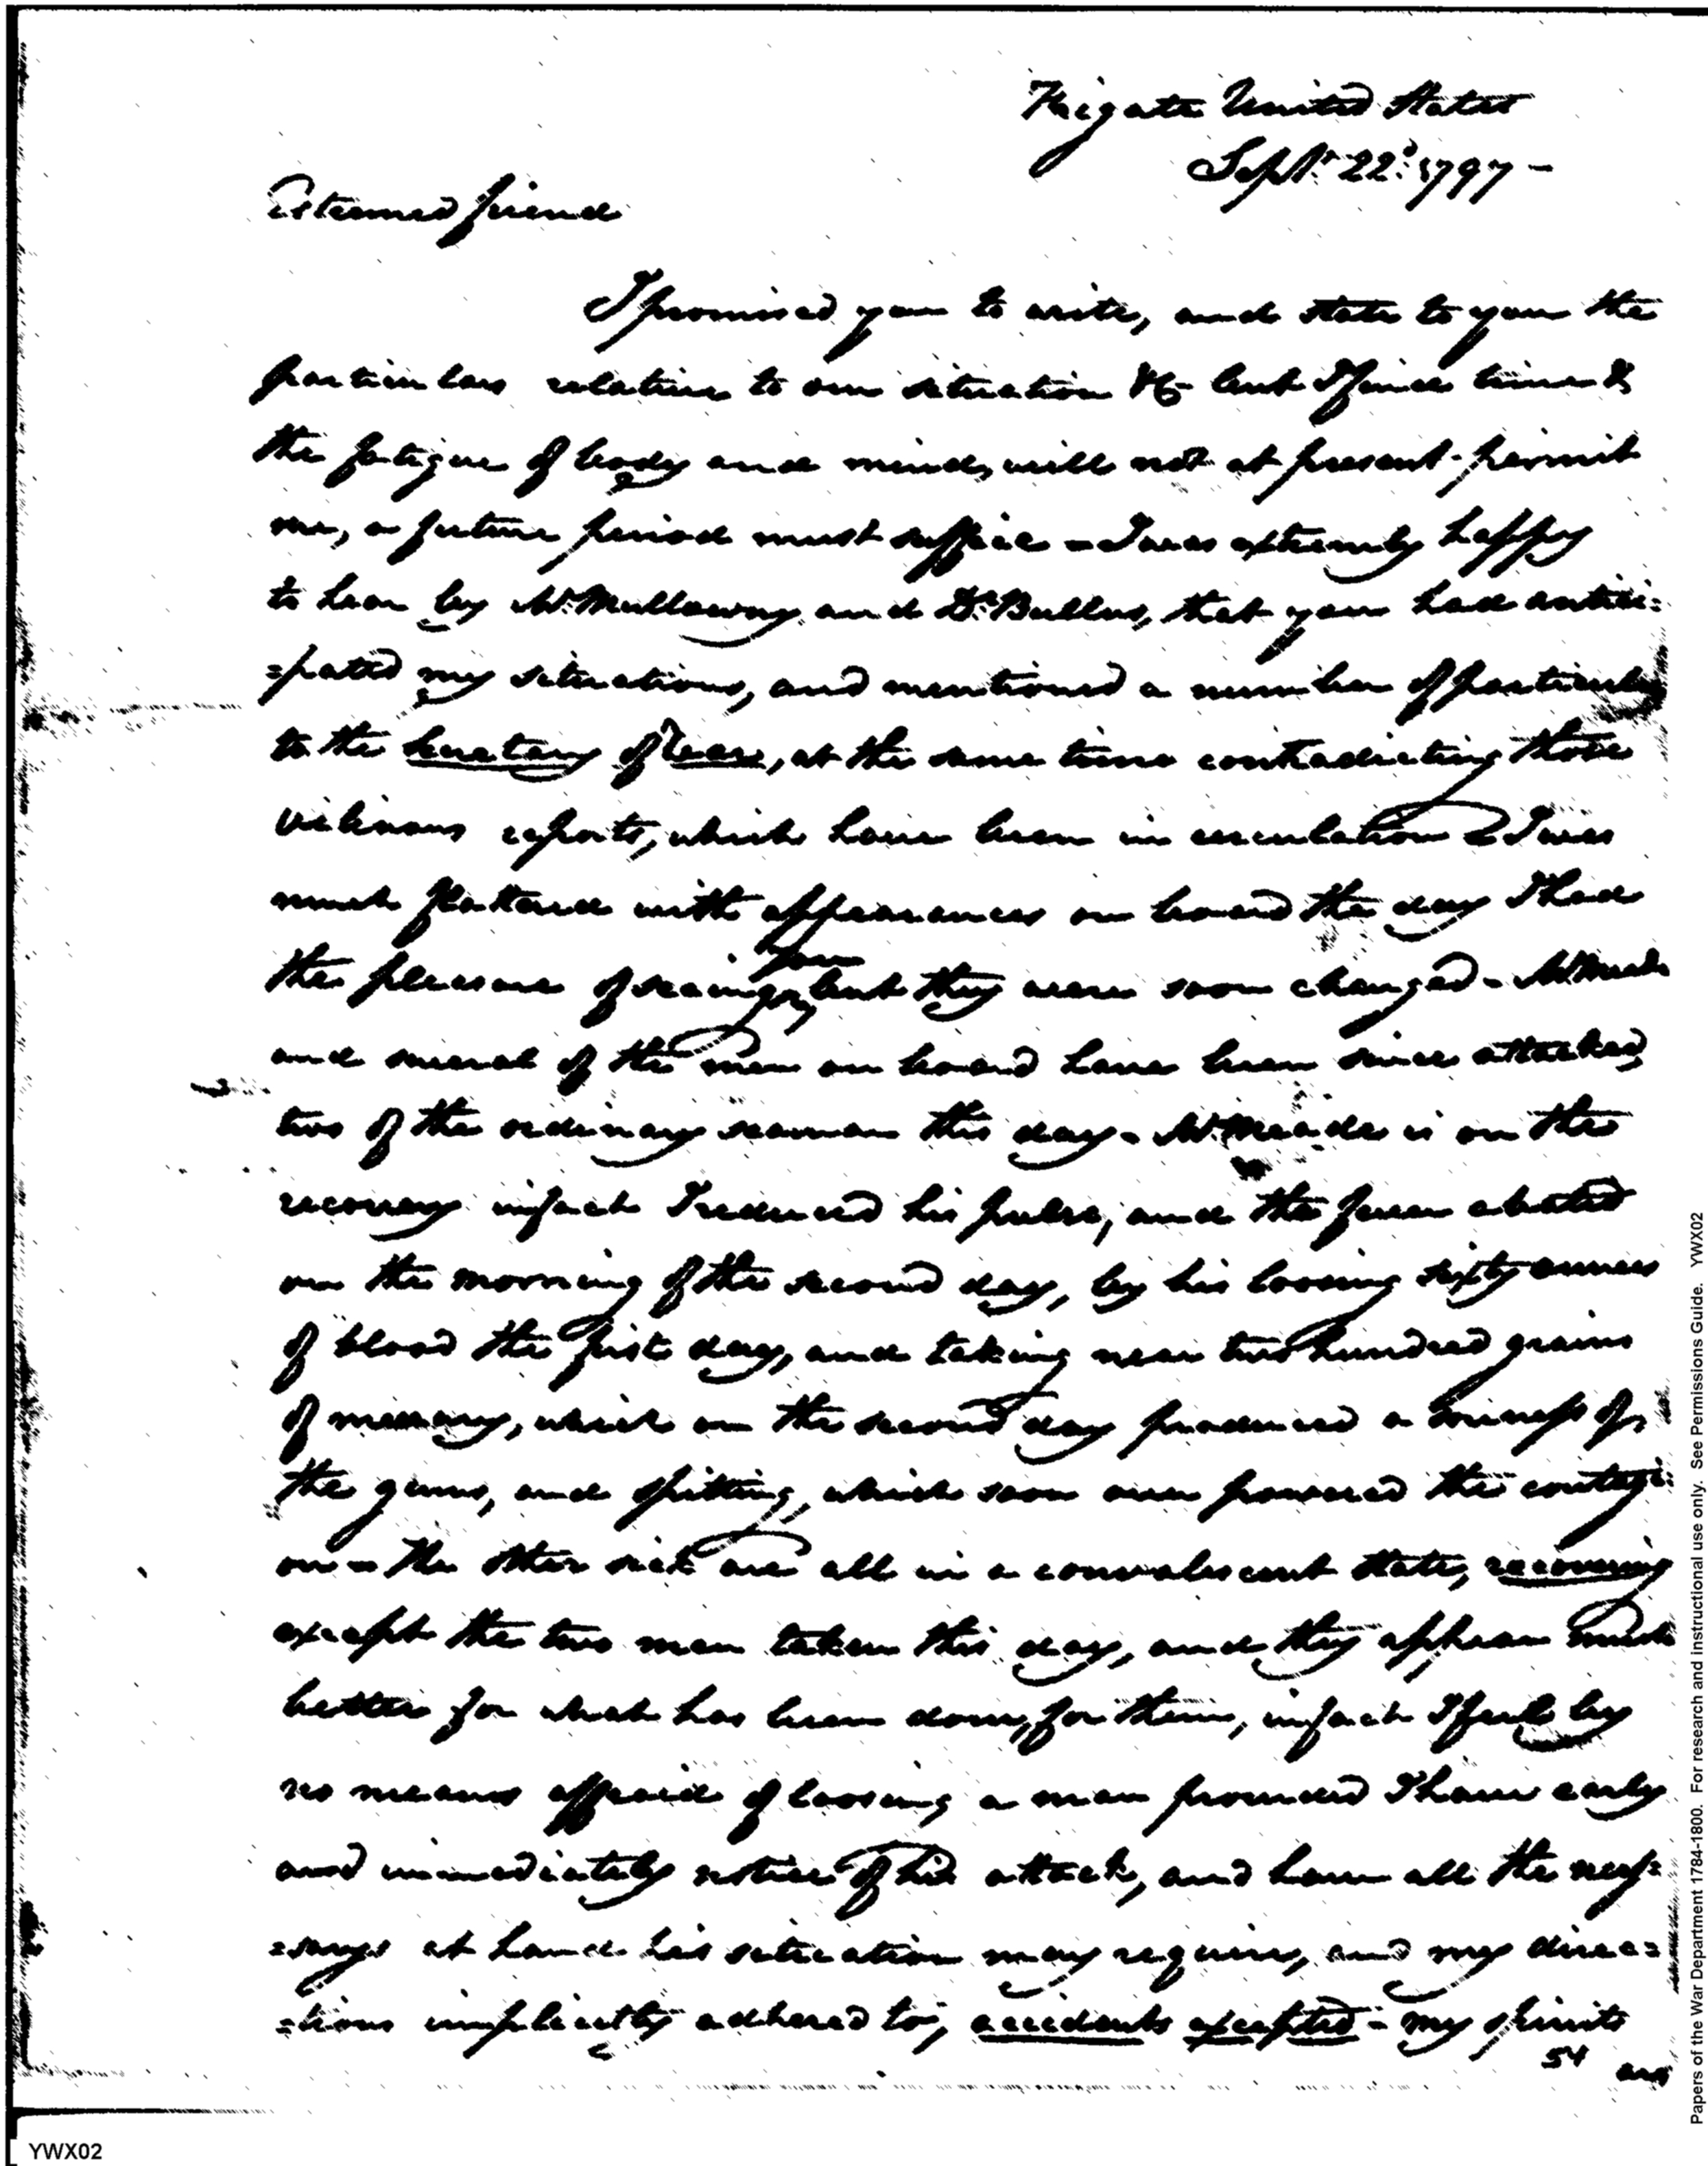 Frigate United States
Sept. 22d. 1797 -
Esteemed friend
I promised you to write, and state to you the
particulars relative to our situation &c but I find time &
the fatigue of body and mind, will not at present permit
me, a future period must suffice - I was extremely happy
to hear by Mr. Mullowny and Dr. Bullus, that you had antici=
=pated my situations, and mentioned a number of particulars
to the Secretary of War, at the same time contradicting those
vilinous reports, which have been in circulation I was
much flattered with appearances on board the day I had
the pleasure of seeing you, but they were soon changed - Mr. Meade
and several of the men on board have been since attacked,
two of the ordinary seaman this day - Mr. Meade is on the
recovery infact I reduced his pulse, and the fever abated
on the morning of the second day, by his loosing sixty ounces
of blood the first day, and taking near two hundred grains
of mercury, which on the second day produced a soreness of
the gums, and spitting, which soon over powered the contagi=
on - The other sick are all in a convalescent state, recovering
except the two men taken this day, and they appear much
better for what has been done, for them, infact I feel by
no means affraid of loosing a man provided I have early
and immediately notice of his attack, and have all the necess=
=sarys at hand his situation may require, and my direc=
=tions implicitly adhered to, accidents excepted - my spirits
54
are
Papers of the War Department 1784-1800. For research and instructional use only. See Permissions Guide. YWX02
YWX02